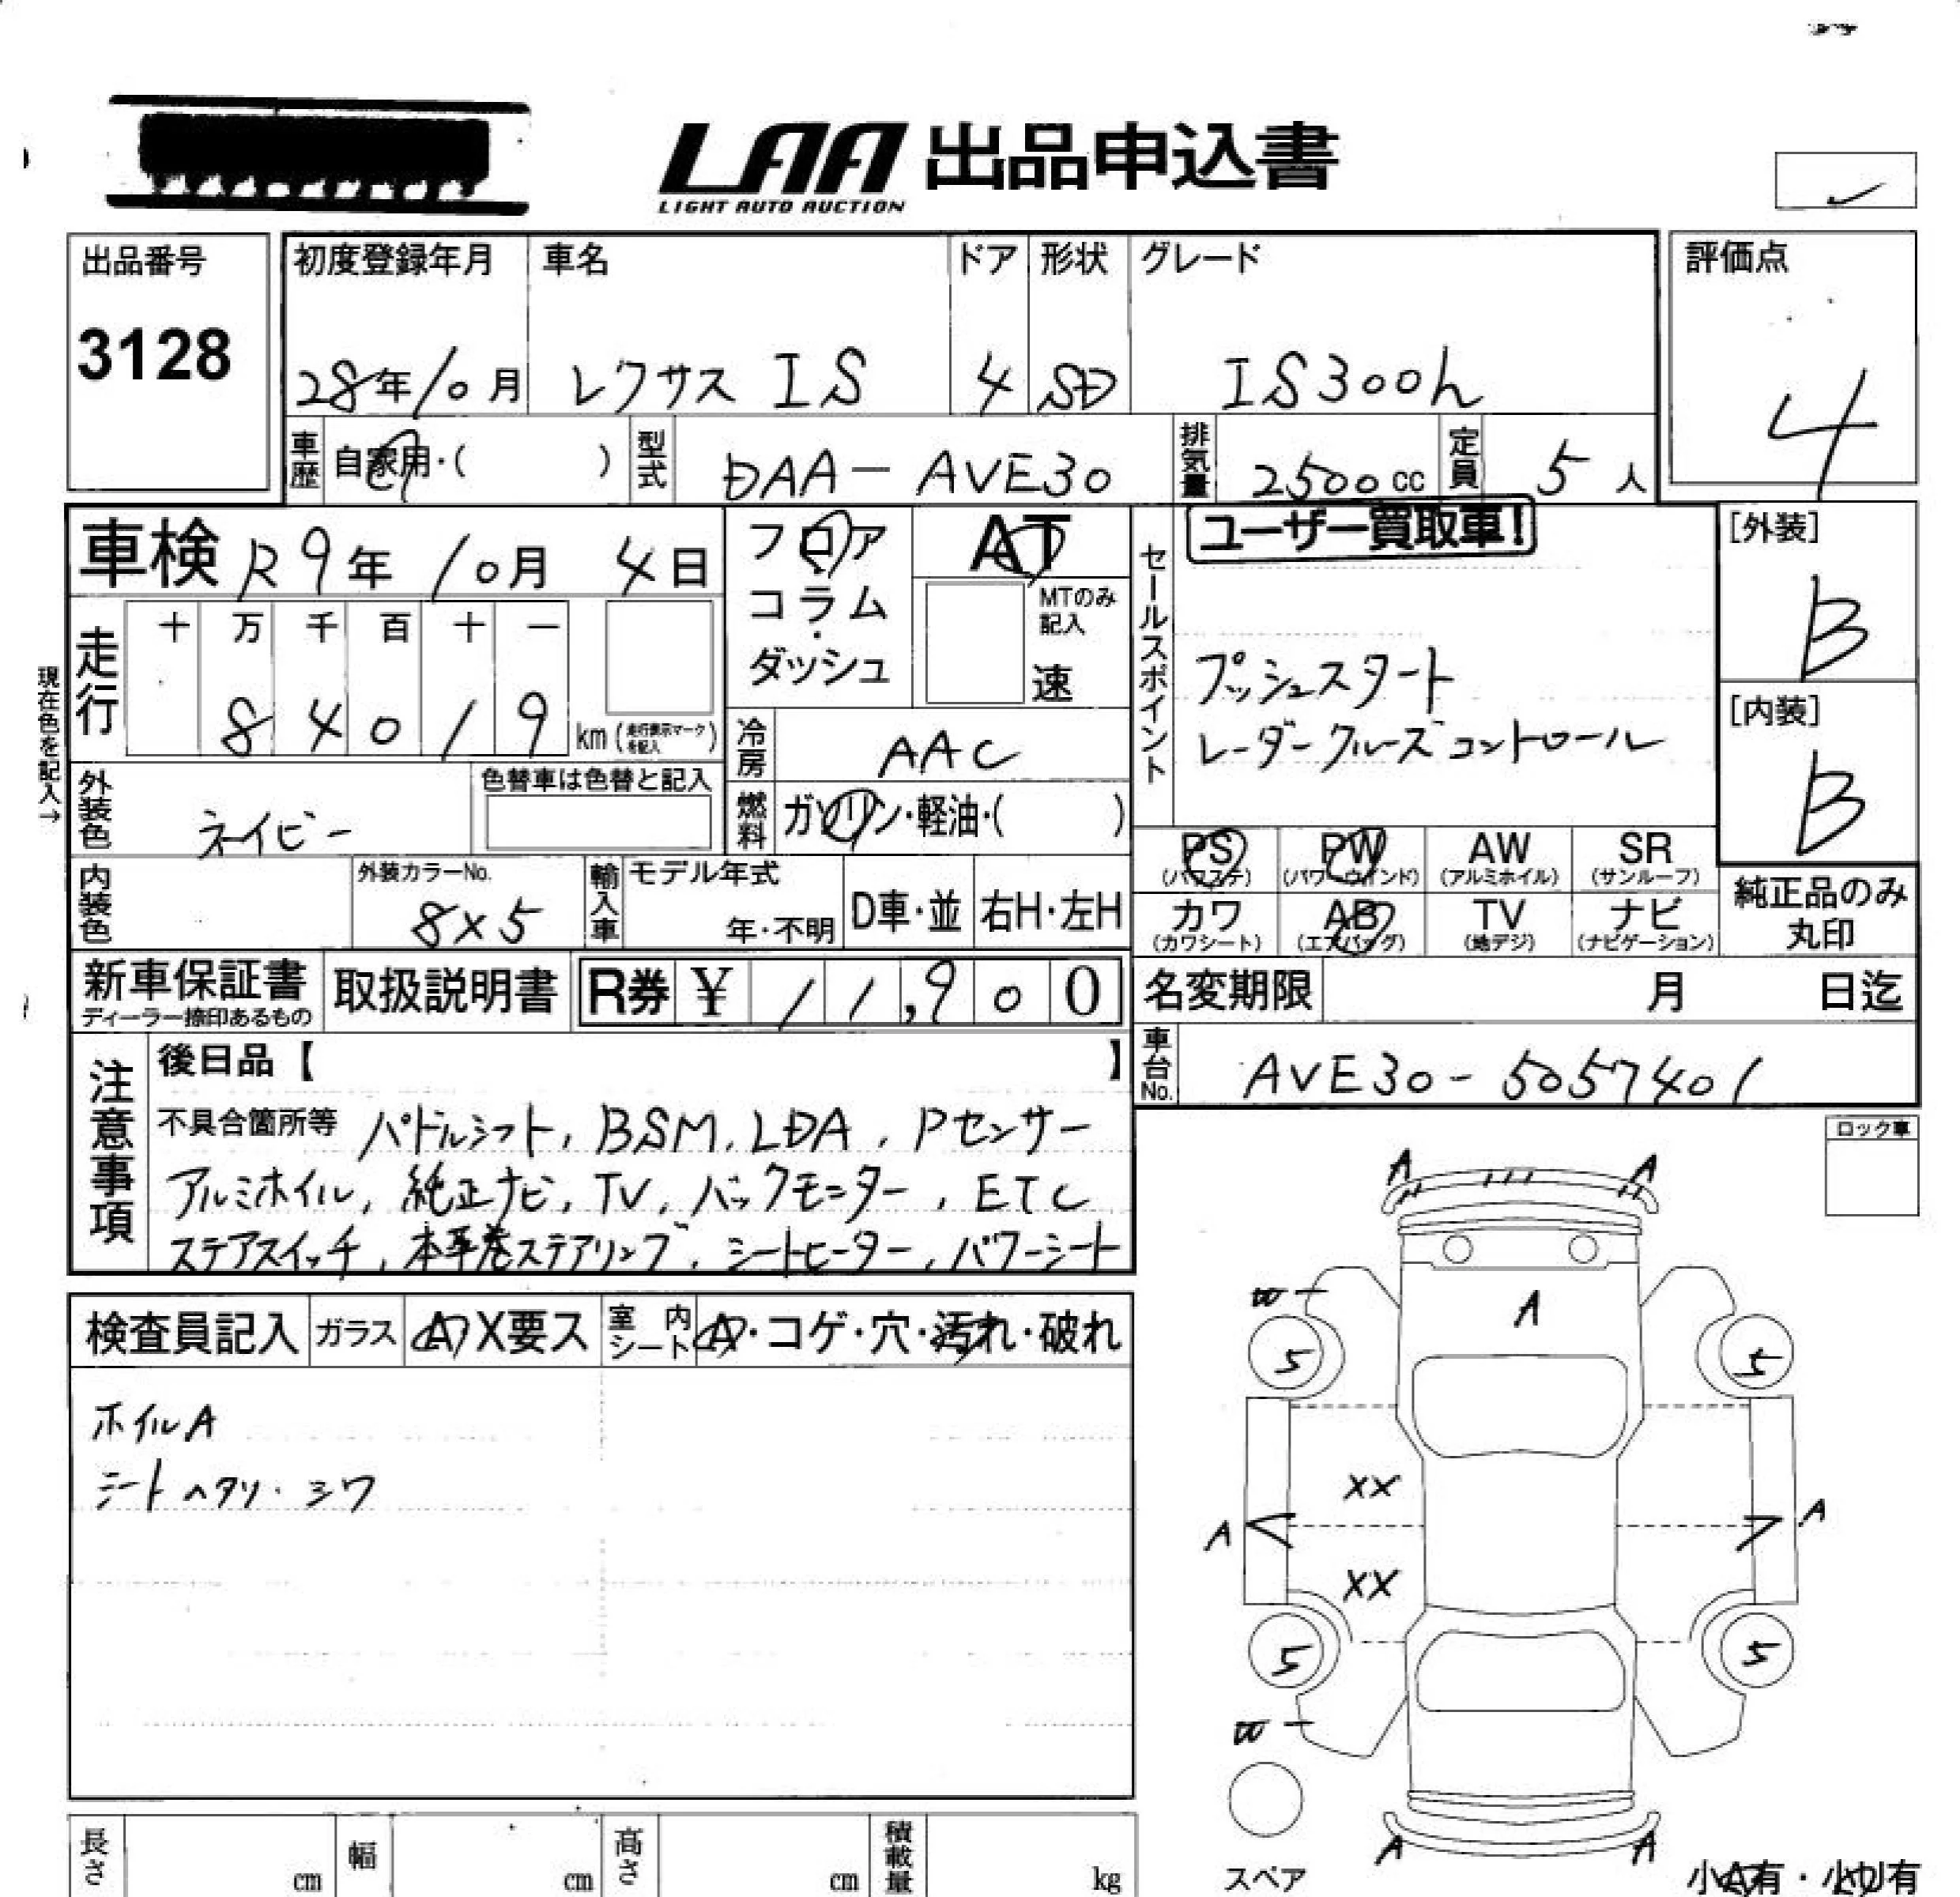 LAA 出品申込書
LIGHT AUTO AUCTION
出品番号
3128
初度登録年月
28年10月
車名
レクサス IS
ドア
4
形状
SD
グレード
IS300h
評価点
4
車歴 自家用・( )
型式 DAA-AVE30
排気量 2500cc
定員 5人
車検 R9年10月4日
フロア・コラム・ダッシュ
AT
MTのみ記入
速
セールスポイント
ユーザー買取車!
プッシュスタート
レーダークルーズコントロール
[外装]
B
[内装]
B
走行
十 万 千 百 十 一
8 4 0 1 9 km (走行表示マークを記入)
現在色を記入→
冷房 AAC
燃料 ガソリン・軽油・( )
外装色 ネイビー
色替車は色替と記入
内装色
外装カラーNo.
8X5
輸入車 モデル年式
年・不明
D車・並
右H・左H
PS
(パワステ)
PW
(パワーウインド)
AW
(アルミホイル)
SR
(サンルーフ)
カワ
(カワシート)
AB
(エアバッグ)
TV
(地デジ)
ナビ
(ナビゲーション)
純正品のみ
丸印
新車保証書
ディーラー捺印あるもの
取扱説明書
R券 ¥ 11,900
名変期限 月 日迄
車台No. AVE30-5057401
注意事項
後日品【 】
不具合箇所等 パドルシフト, BSM, LDA, Pセンサー
アルミホイル, 純正ナビ, TV, バックモニター, ETC
ステアスイッチ, 本革巻ステアリング, シートヒーター, パワーシート
ロック車
検査員記入
ガラス
A X要ス
室内シート
A・コゲ・穴・汚れ・破れ
ホイルA
シートヘタリ・シワ
A A
A
5 5
XX
A A
XX
5 5
A A
スペア
小A有・小U有
長さ cm
幅 cm
高さ cm
積載量 kg